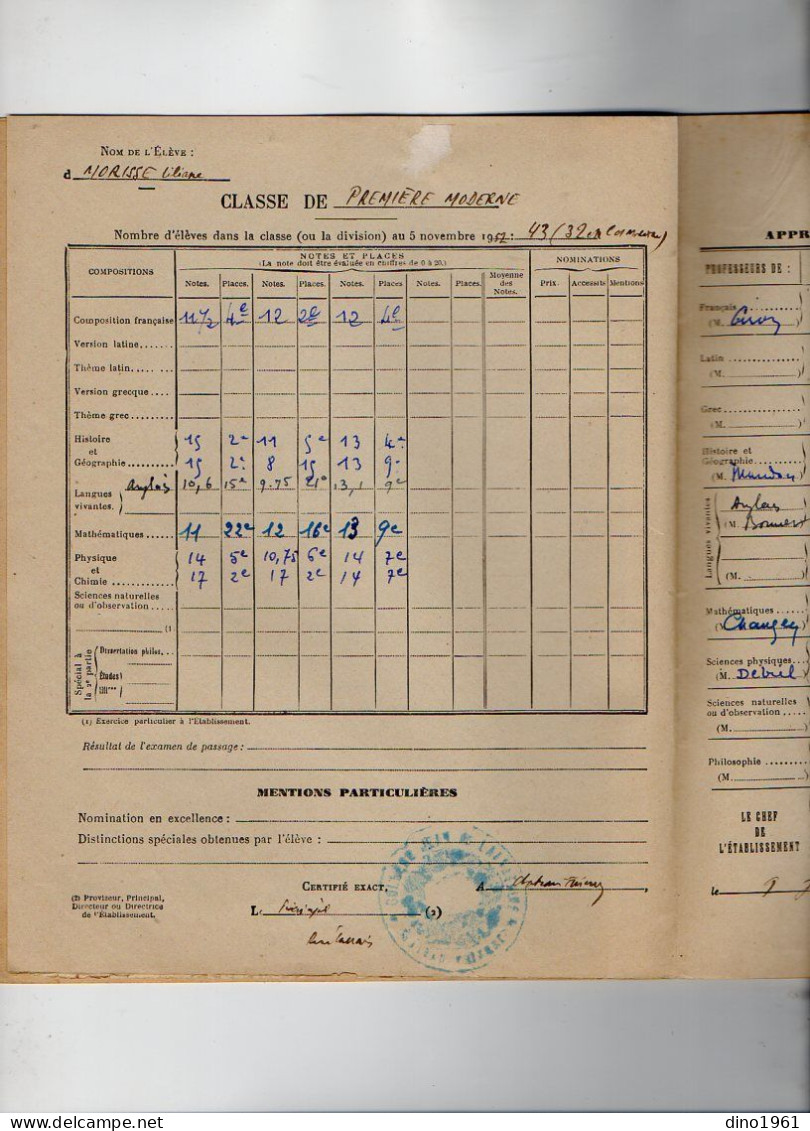 NOM DE L'ÉLÈVE :
d MORISSE Liliane
CLASSE DE PREMIÈRE MODERNE
Nombre d'élèves dans la classe (ou la division) au 5 novembre 1957 : 43 (32
COMPOSITIONS
NOTES ET PLACES
(La note doit être évaluée en chiffres de 0 à 20.)
NOMINATIONS
Notes. Places. Notes. Places. Notes. Places Notes. Places. Notes. Places. Moyenne des Notes. Prix. Accessits Mentions
Composition française 11 1/2 4e 12 2e 12 4e
Version latine
Thème latin
Version grecque
Thème grec
Histoire 15 2e 11 5e 13 4e
et
Géographie 15 2e 8 15 13 9e
Langues vivantes. Anglais 10,6 15e 9.75 21e 13,1 9e
Mathématiques 11 22e 12 16e 13 9e
Physique 14 5e 10,75 6e 14 7e
et
Chimie 17 2e 17 2e 14 7e
Sciences naturelles
ou d'observation
(1
Spécial à la 2e partie
Dissertation philos.
Études
(1) Exercice particulier à l'Établissement.
Résultat de l'examen de passage :
MENTIONS PARTICULIÈRES
Nomination en excellence :
Distinctions spéciales obtenues par l'élève :
CERTIFIÉ EXACT,
A
(2) Proviseur, Principal,
Directeur ou Directrice
de l'Établissement.
L. (2)
APPR
PROFESSEURS DE :
Français
(M.
Latin
(M.
Grec
(M.
Histoire et
Géographie
(M.
Langues vivantes
Anglais
(M.
(M.
Mathématiques
(M. Changey
Sciences physiques
(M. Debiel
Sciences naturelles
ou d'observation
(M.
Philosophie
(M.
LE CHEF
DE
L'ÉTABLISSEMENT
le 9
dino1961